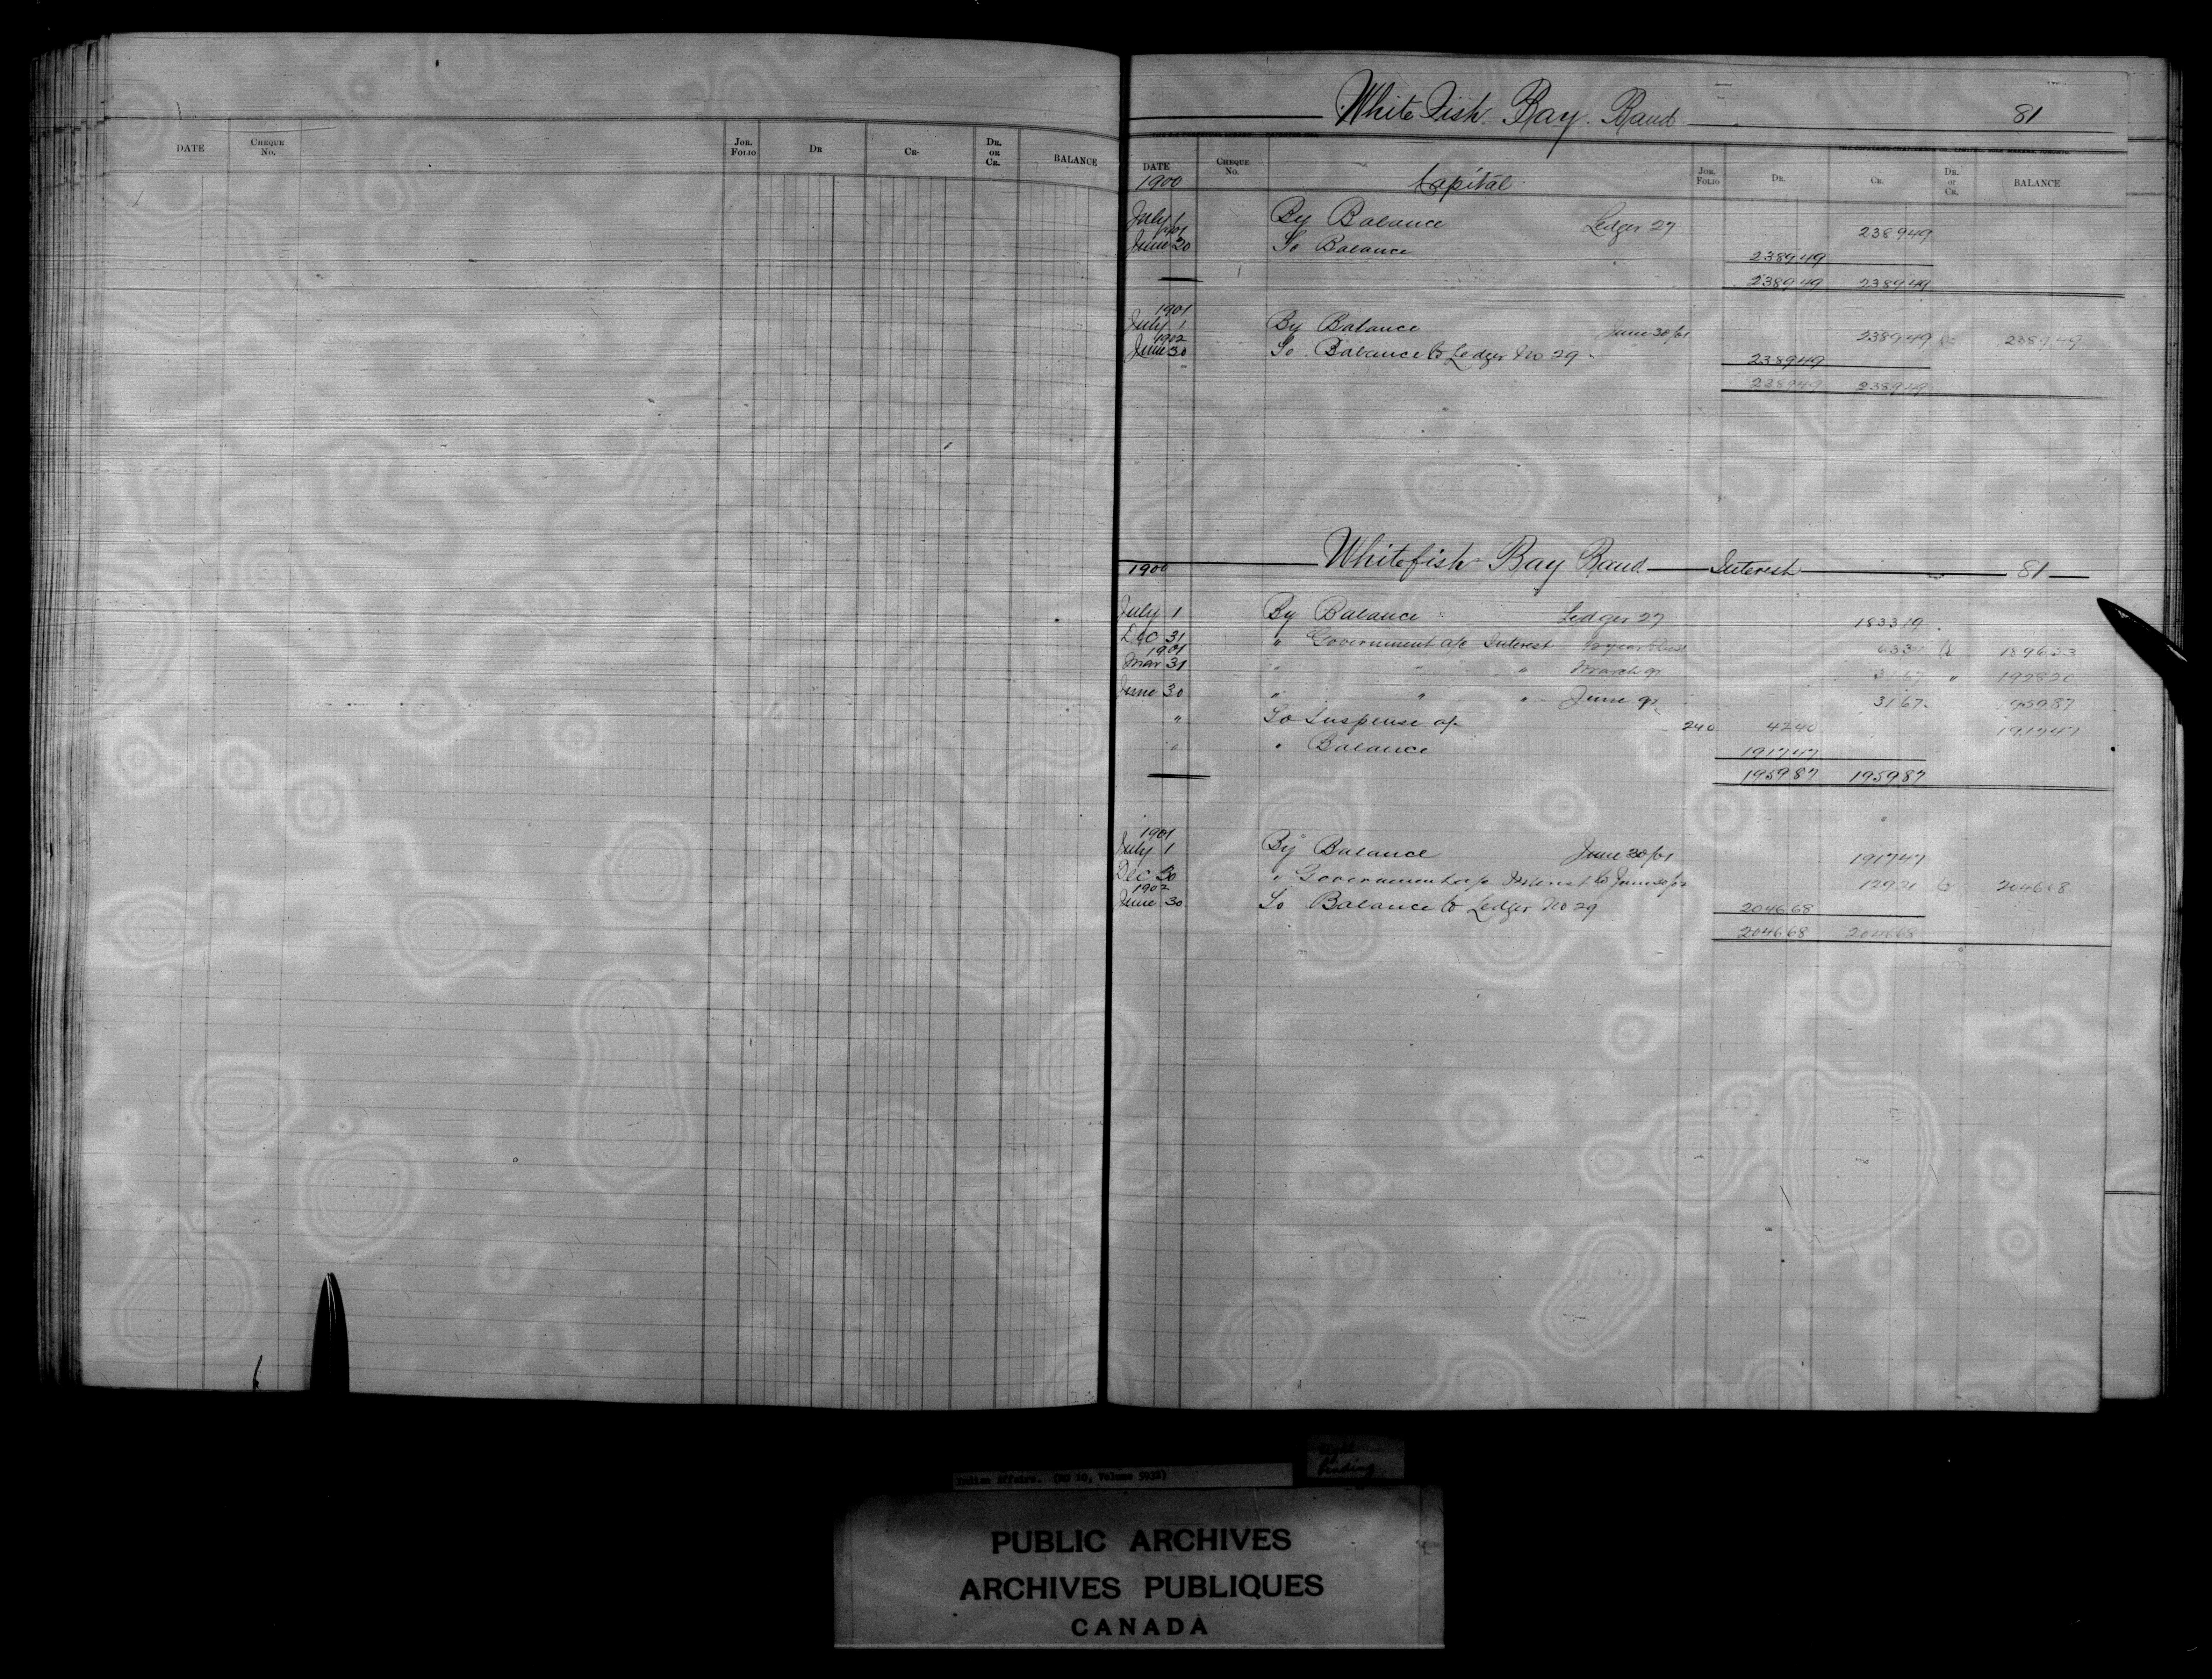 DATE CHEQUE No. JOR. FOLIO DR CR. DR. OR CR. BALANCE
White Fish Bay Band 81
DATE CHEQUE No. Capital JOR. FOLIO DR. CR. DR. OR CR. BALANCE
1900
July 1 By Balance Ledger 27 2389 49
1901
June 30 To Balance 2389 49
2389 49 2389 49
1901
July 1 By Balance June 30/01 2389 49 Cr 2389 49
1902
June 30 To Balance to Ledger No 29 2389 49
2389 49 2389 49
Whitefish Bay Band Interest 81
1900
July 1 By Balance Ledger 27 1833 19
Dec 31 " Government a/c Interest 63 34 Cr 1896 53
1901
Mar 31 " " " March qr 31 67 " 1928 20
June 30 " " " June qr 31 67 1959 87
" To Suspense a/c 240 42 40 1917 47
" " Balance 1917 47
1959 87 1959 87
1901
July 1 By Balance June 30/01 1917 47
Dec 30 " Government a/c Interest to June 30/02 129 21 Cr 2046 68
1902
June 30 To Balance to Ledger No 29 2046 68
2046 68 2046 68
Indian Affairs. (RG 10, Volume 5938)
finding
PUBLIC ARCHIVES
ARCHIVES PUBLIQUES
CANADA